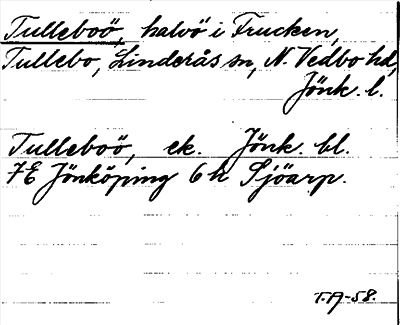 Tulleboö, halvö i Frucken,
Tullebo, Linderås sn, N. Vedbo hd,
Jönk. l.
Tulleboö, ek. Jönk. bl.
7E Jönköping 6h Sjöarp.
T.A-58.